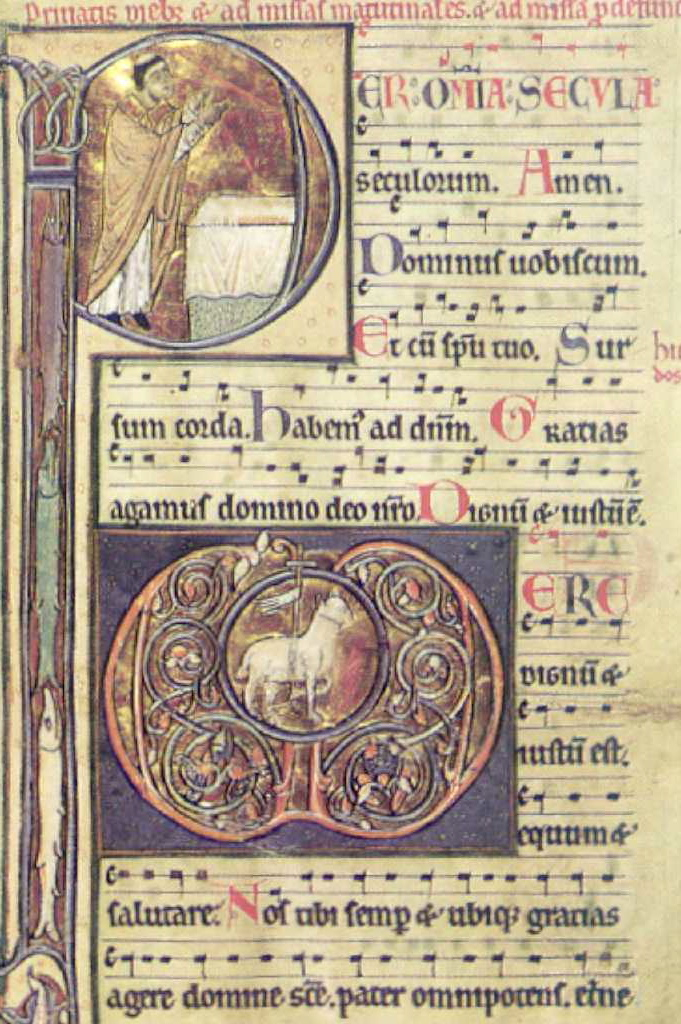 Priuatis dieb; & ad missas matutinales. & ad missā p defunc
PER: OM̄IA: SECVLA
seculorum. Amen.
Dominus uobiscum.
Et cū sp̄u tuo. Sur
sum corda. habem' ad dnm̄. Gratias
agamus domino deo nr̄o. Dignū & iustū ē.
VERE
dignū &
iustū est.
equum &
salutare. Nos tibi semp & ubiq; gratias
agere domine sc̄e. pater omnipotens. etne